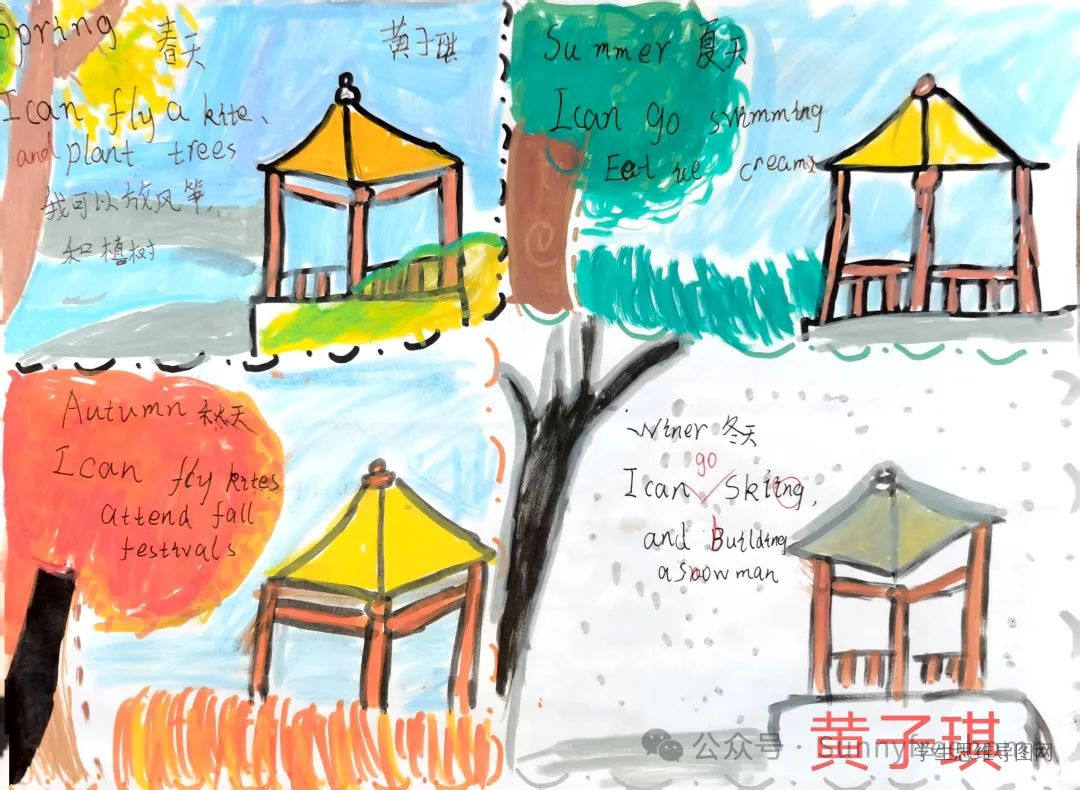 Spring 春天
黄子琪
I can fly a kite、
and plant trees
我可以放风筝,
和植树
Summer 夏天
I can go swimming
Eat ice creams
Autumn 秋天
I can fly kites
attend fall
festivals
Winer 冬天
go
I can Skiing,
and Building
a Snowman
黄子琪
公众号 · Sunny
学生思维导图网